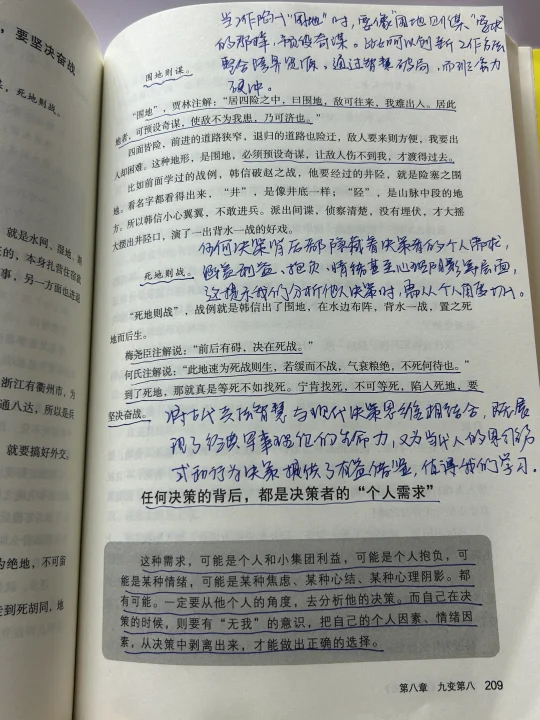 ，要坚决奋战
死地则战。
就是水网、湿地、湖
本身扎营住宿就
事，另一方面也进退
浙江有衢州市，为
通八达，所以是兵
就要搞好外交。
为绝地，不可留
走到死胡同，地
当工作陷入“围地”时，要像“围地则谋”要求
的那样，预设奇谋。比如可以创新工作方法
整合跨界资源，通过智慧破局，而非蛮力
硬冲。
围地则谋。
“围地”，贾林注解：“居四险之中，曰围地，敌可往来，我难出入。居此
地者，可预设奇谋，使敌不为我患，乃可济也。”
四面皆险，前进的道路狭窄，退归的道路也险迂，敌人要来则方便，我要出
入却困难。这种地形，是围地，必须预设奇谋，让敌人伤不到我，才渡得过去。
比如前面学过的战例，韩信破赵之战，他要经过的井陉，就是险塞之围
地。看名字都看得出来，“井”，是像井底一样；“陉”，是山脉中段的地
方。所以韩信小心翼翼，不敢进兵。派出间谍，侦察清楚，没有埋伏，才大摇
大摆出井陉口，演了一出背水一战的好戏。
任何决策背后都隐藏着决策者的个人需求，
涵盖利益、抱负、情绪甚至心理阴影等层面，
这提示我们分析他人决策时，需从个人角度切入。
死地则战。
“死地则战”，战例就是韩信出了围地，在水边布阵，背水一战，置之死
地而后生。
梅尧臣注解说：“前后有碍，决在死战。”
何氏注解说：“此地速为死战则生，若缓而不战，气衰粮绝，不死何待也。”
到了死地，那就真是等死不如找死。宁肯找死，不可等死，陷人死地，要
坚决奋战。
将古代兵法智慧与现代决策思维相结合，既展
现了经典军事理论的生命力，又为当代人的
行为决策提供了有益借鉴，值得我们学习。
任何决策的背后，都是决策者的“个人需求”
这种需求，可能是个人和小集团利益，可能是个人抱负，可
能是某种情绪，可能是某种焦虑、某种心结、某种心理阴影。都
有可能。一定要从他个人的角度，去分析他的决策。而自己在决
策的时候，则要有“无我”的意识，把自己的个人因素、情绪因
素，从决策中剥离出来，才可能做出正确的选择。
第八章 九变第八 209